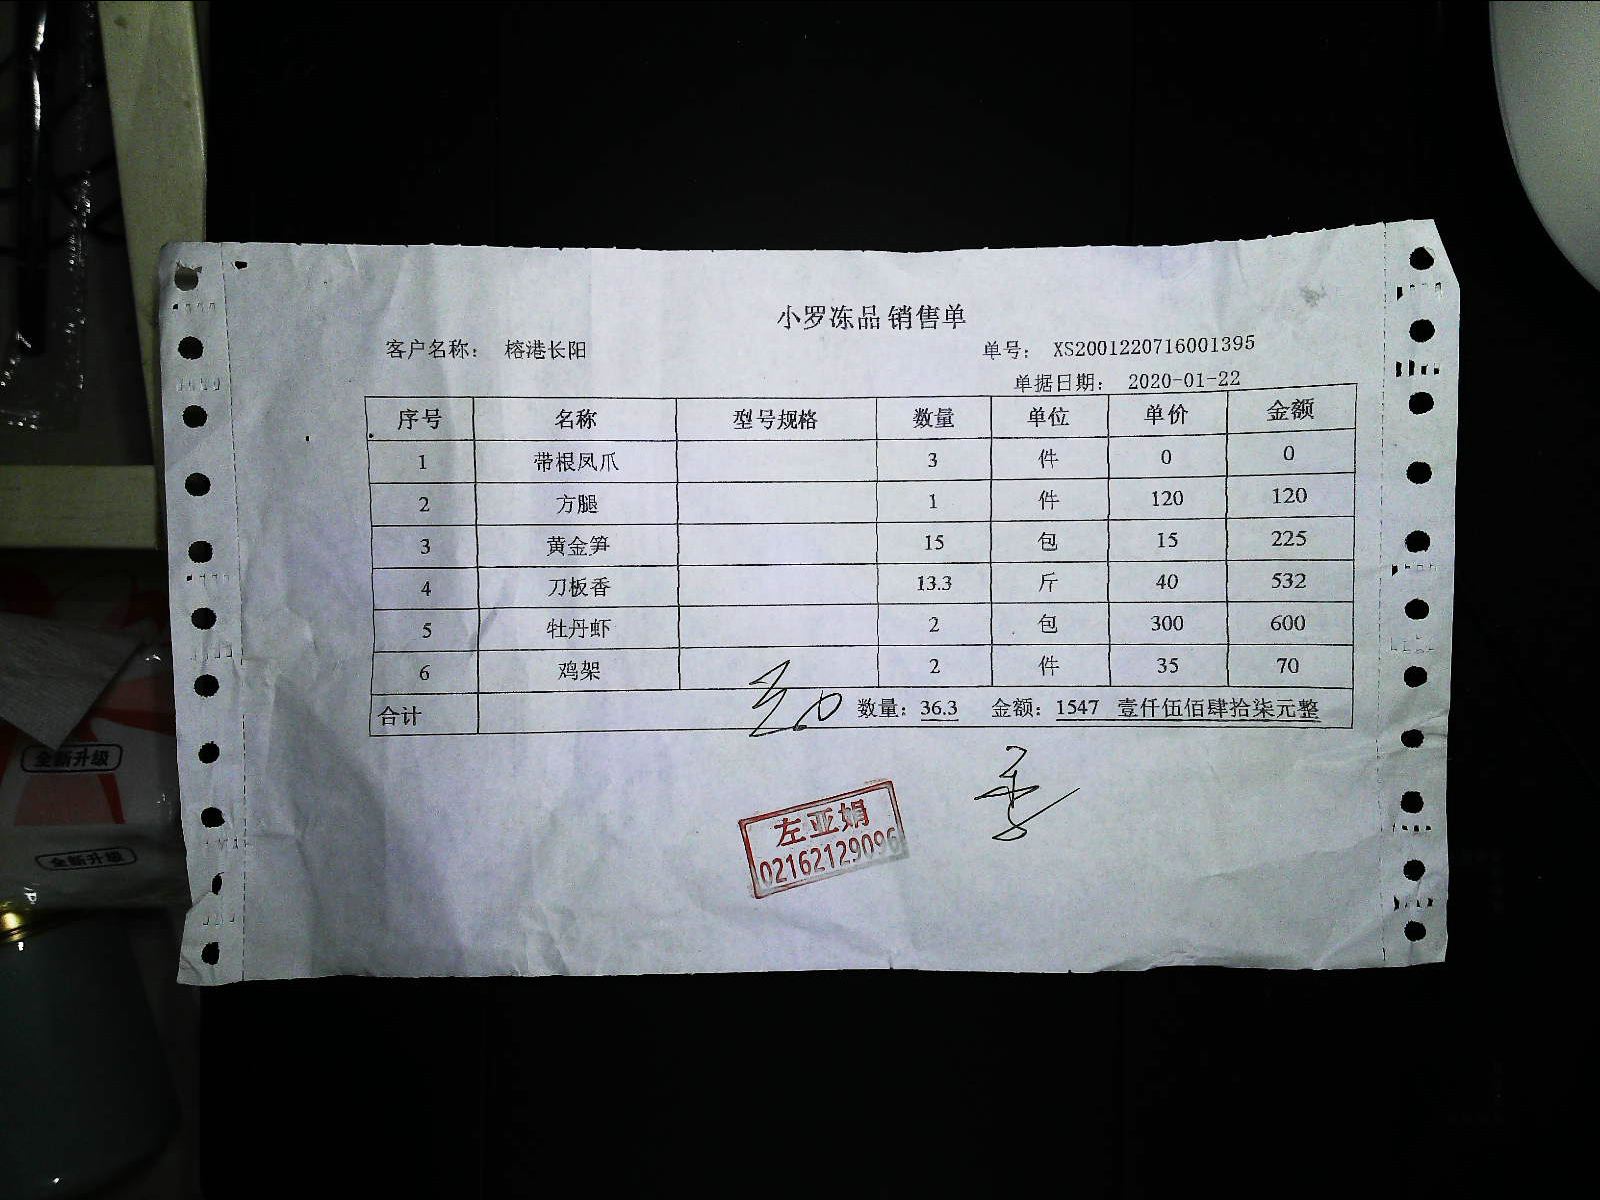 小罗冻品 销售单
客户名称： 榕港长阳 单号： XS2001220716001395
单据日期： 2020-01-22
序号 名称 型号规格 数量 单位 单价 金额
1 带根凤爪 3 件 0 0
2 方腿 1 件 120 120
3 黄金笋 15 包 15 225
4 刀板香 13.3 斤 40 532
5 牡丹虾 2 包 300 600
6 鸡架 2 件 35 70
合计 数量：36.3 金额：1547 壹仟伍佰肆拾柒元整
左亚娟
02162129096
全新升级
全新升级